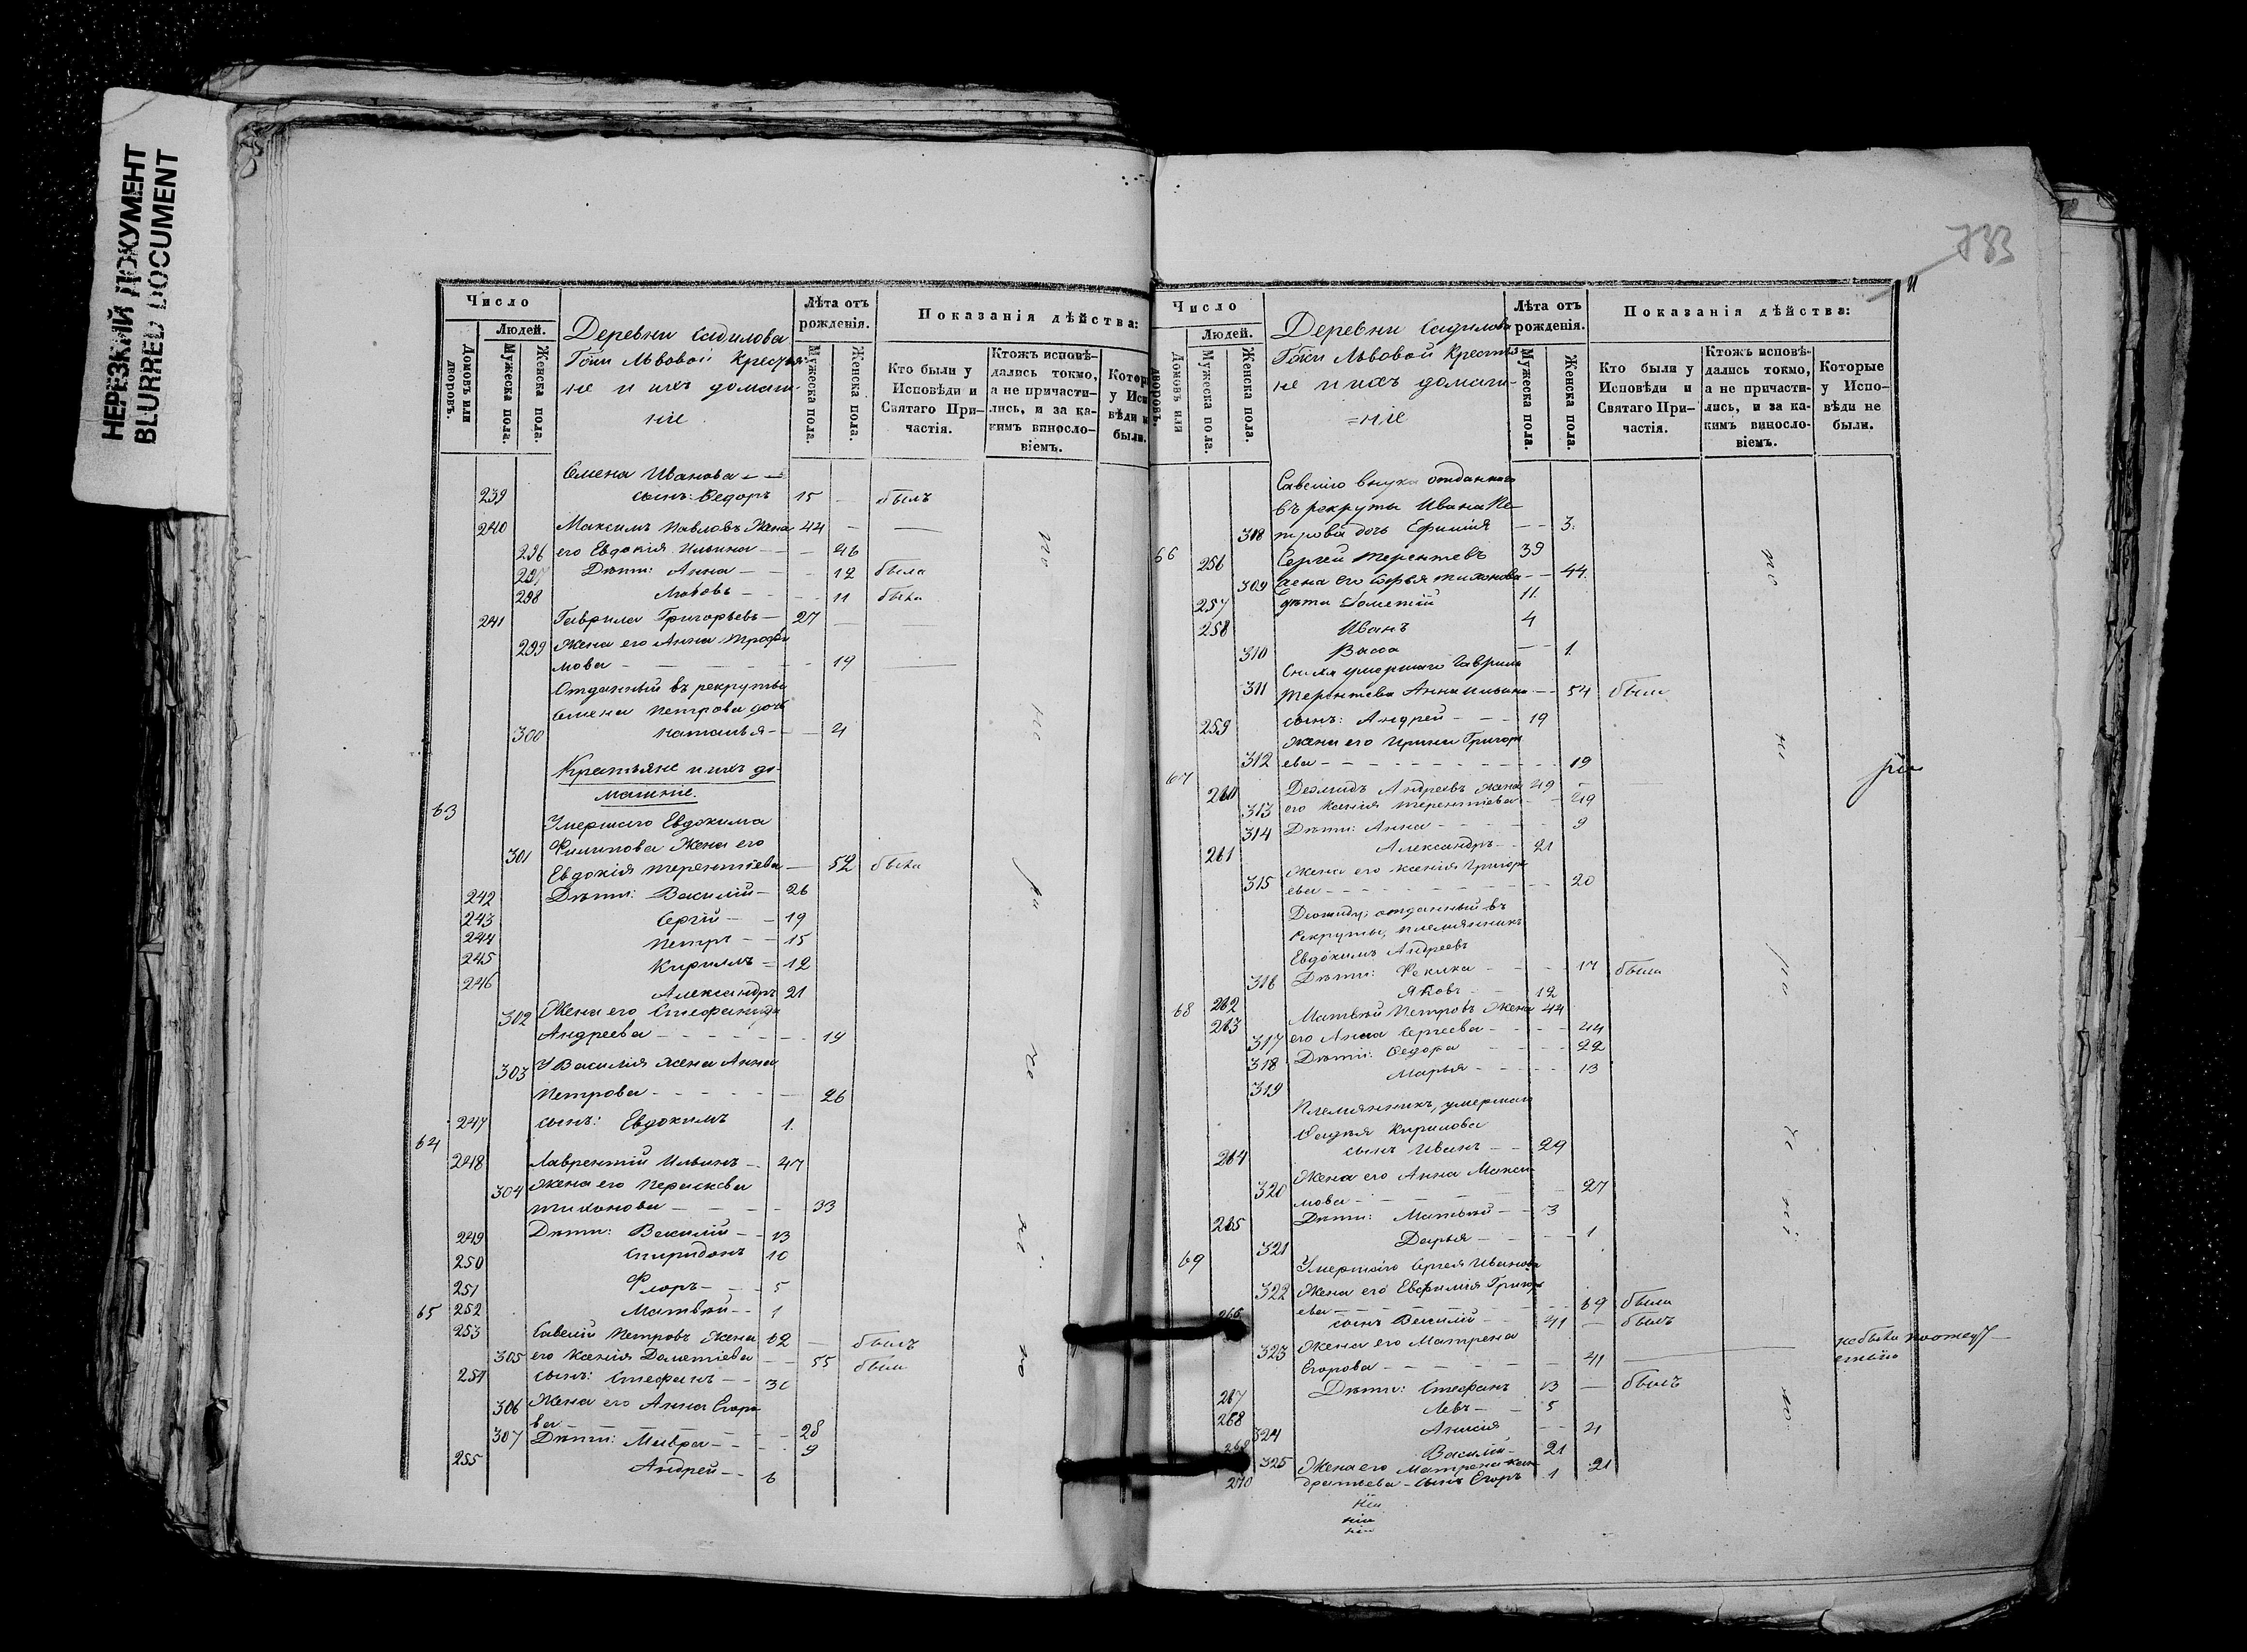 НЕРЕЗКИЙ ДОКУМЕНТ
BLURRED DOCUMENT
Число
Людей.
Домовъ или дворовъ.
Мужеска пола.
Женска пола.
Деревни Садилова
Гжи Львовой крестья-
не и ихъ домаш-
ніе
Лѣта отъ рожденія.
Мужеска пола.
Женска пола.
Показанія дѣйства:
Кто были у Исповѣди и Святаго При-частія.
Ктожъ исповѣ-дались токмо, а не причасти-лись, и за ка-кимъ винослo-віемъ.
Которы у Исп вѣди н были.
Семена Иванова
239 сынъ: Ѳедоръ 15 былъ
240 Максимъ Павловъ Жена 44
296 его Евдокія Ильина 46
297 Дѣти: Анна 12 была
298 Любовь 11 была
241 Гаврила Григорьевъ 27
299 Жена его Анна Трофи
мова 19
Отданный въ рекруты
Семена Петрова дочь
300 Наталья 4
Крестьяне и ихъ до-
машніе.
63
Умершаго Евдокима
301 Филипова Жена его
Евдокія Терентіева 52 была
242 Дѣти: Василій 26
243 Сергій 19
244 Петръ 15
245 Кирилъ 12
246 Александръ 21
302 Жена его Стефанида
Андреева 19
303 У Василія жена Анна
Петрова 26
247 сынъ: Евдокимъ 1
64
248 Лаврентій Ильинъ 47
304 Жена его Параскева
Тихонова 33
249 Дѣти: Василій 13
250 Спиридонъ 10
251 Флоръ 5
65 252 Матвѣй 1
253 Савелій Петровъ Жена 62 былъ
305 его Ксенія Дометіева 55 была
254 сынъ: Стефанъ
306 Жена его Анна Егоро
ва 28
307 Дѣти: Мавра 9
255 Андрей 6
783
Число
Людей.
Домовъ или дворовъ.
Мужеска пола.
Женска пола.
Деревни Садилова
Гжи Львовой крестья
не и ихъ домаш-
=ніе
Лѣта отъ рожденія.
Мужеска пола.
Женска пола.
Показанія дѣйства:
Кто были у Исповѣди и Святаго При-частія.
Ктожъ исповѣ-дались токмо, а не причасти-лись, и за ка-кимъ винослo-віемъ.
Которые у Испо-вѣди не были.
Савелію внука отданнаго
въ рекруты Ивана Пе-
318 трова дочь Ефимія 3
66 256 Сергей Терентьевъ 39
309 Жена его Софья Тихонова 44
257 Дѣти Дометій 11
258 Иванъ 4
310 Васса 1
умершаго Гаврилы
311 Терентьева Анна Ильина 54 была
259 сынъ: Андрей 19
Жена его Ирина Григорь
312 ева 19
67
260 Деомидъ Андреевъ Жена 49
313 его Ксенія Терентіева 49
314 Дѣти: Анна 9
261 Александръ 21
Жена его Ксенія Григорь
315 ева 20
Деомиду, отданный въ
рекруты, племянникъ
Евдокимъ Андреевъ
316 Дѣти: Фекла 17 была
262 Яковъ 12
68 263 Матвѣй Петровъ Жена 44
317 его Анна Сергеева 44
318 Дѣти: Ѳедора 22
319 Марья 13
Племянникъ, умершаго
Кирилова
264 сынъ Иванъ 29
Жена его Анна Макси
320 мова 27
265 Дѣти: Матвѣй 3
321 Дарья 1
69
Умершаго Сергея Иванова
322 Жена его Евфимія Григорь
ева 69 была
266 сынъ Василій 41 былъ
323 Жена его Матрена
Егорова 41
267 Дѣти: Стефанъ 13 былъ
268 Левъ 5
324 Анисія
269 Василій 21
325 Жена его Матрена Кон
270 дратьева сынъ Егоръ 1 21